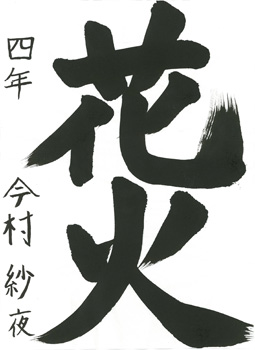 花火
四年 今村紗夜